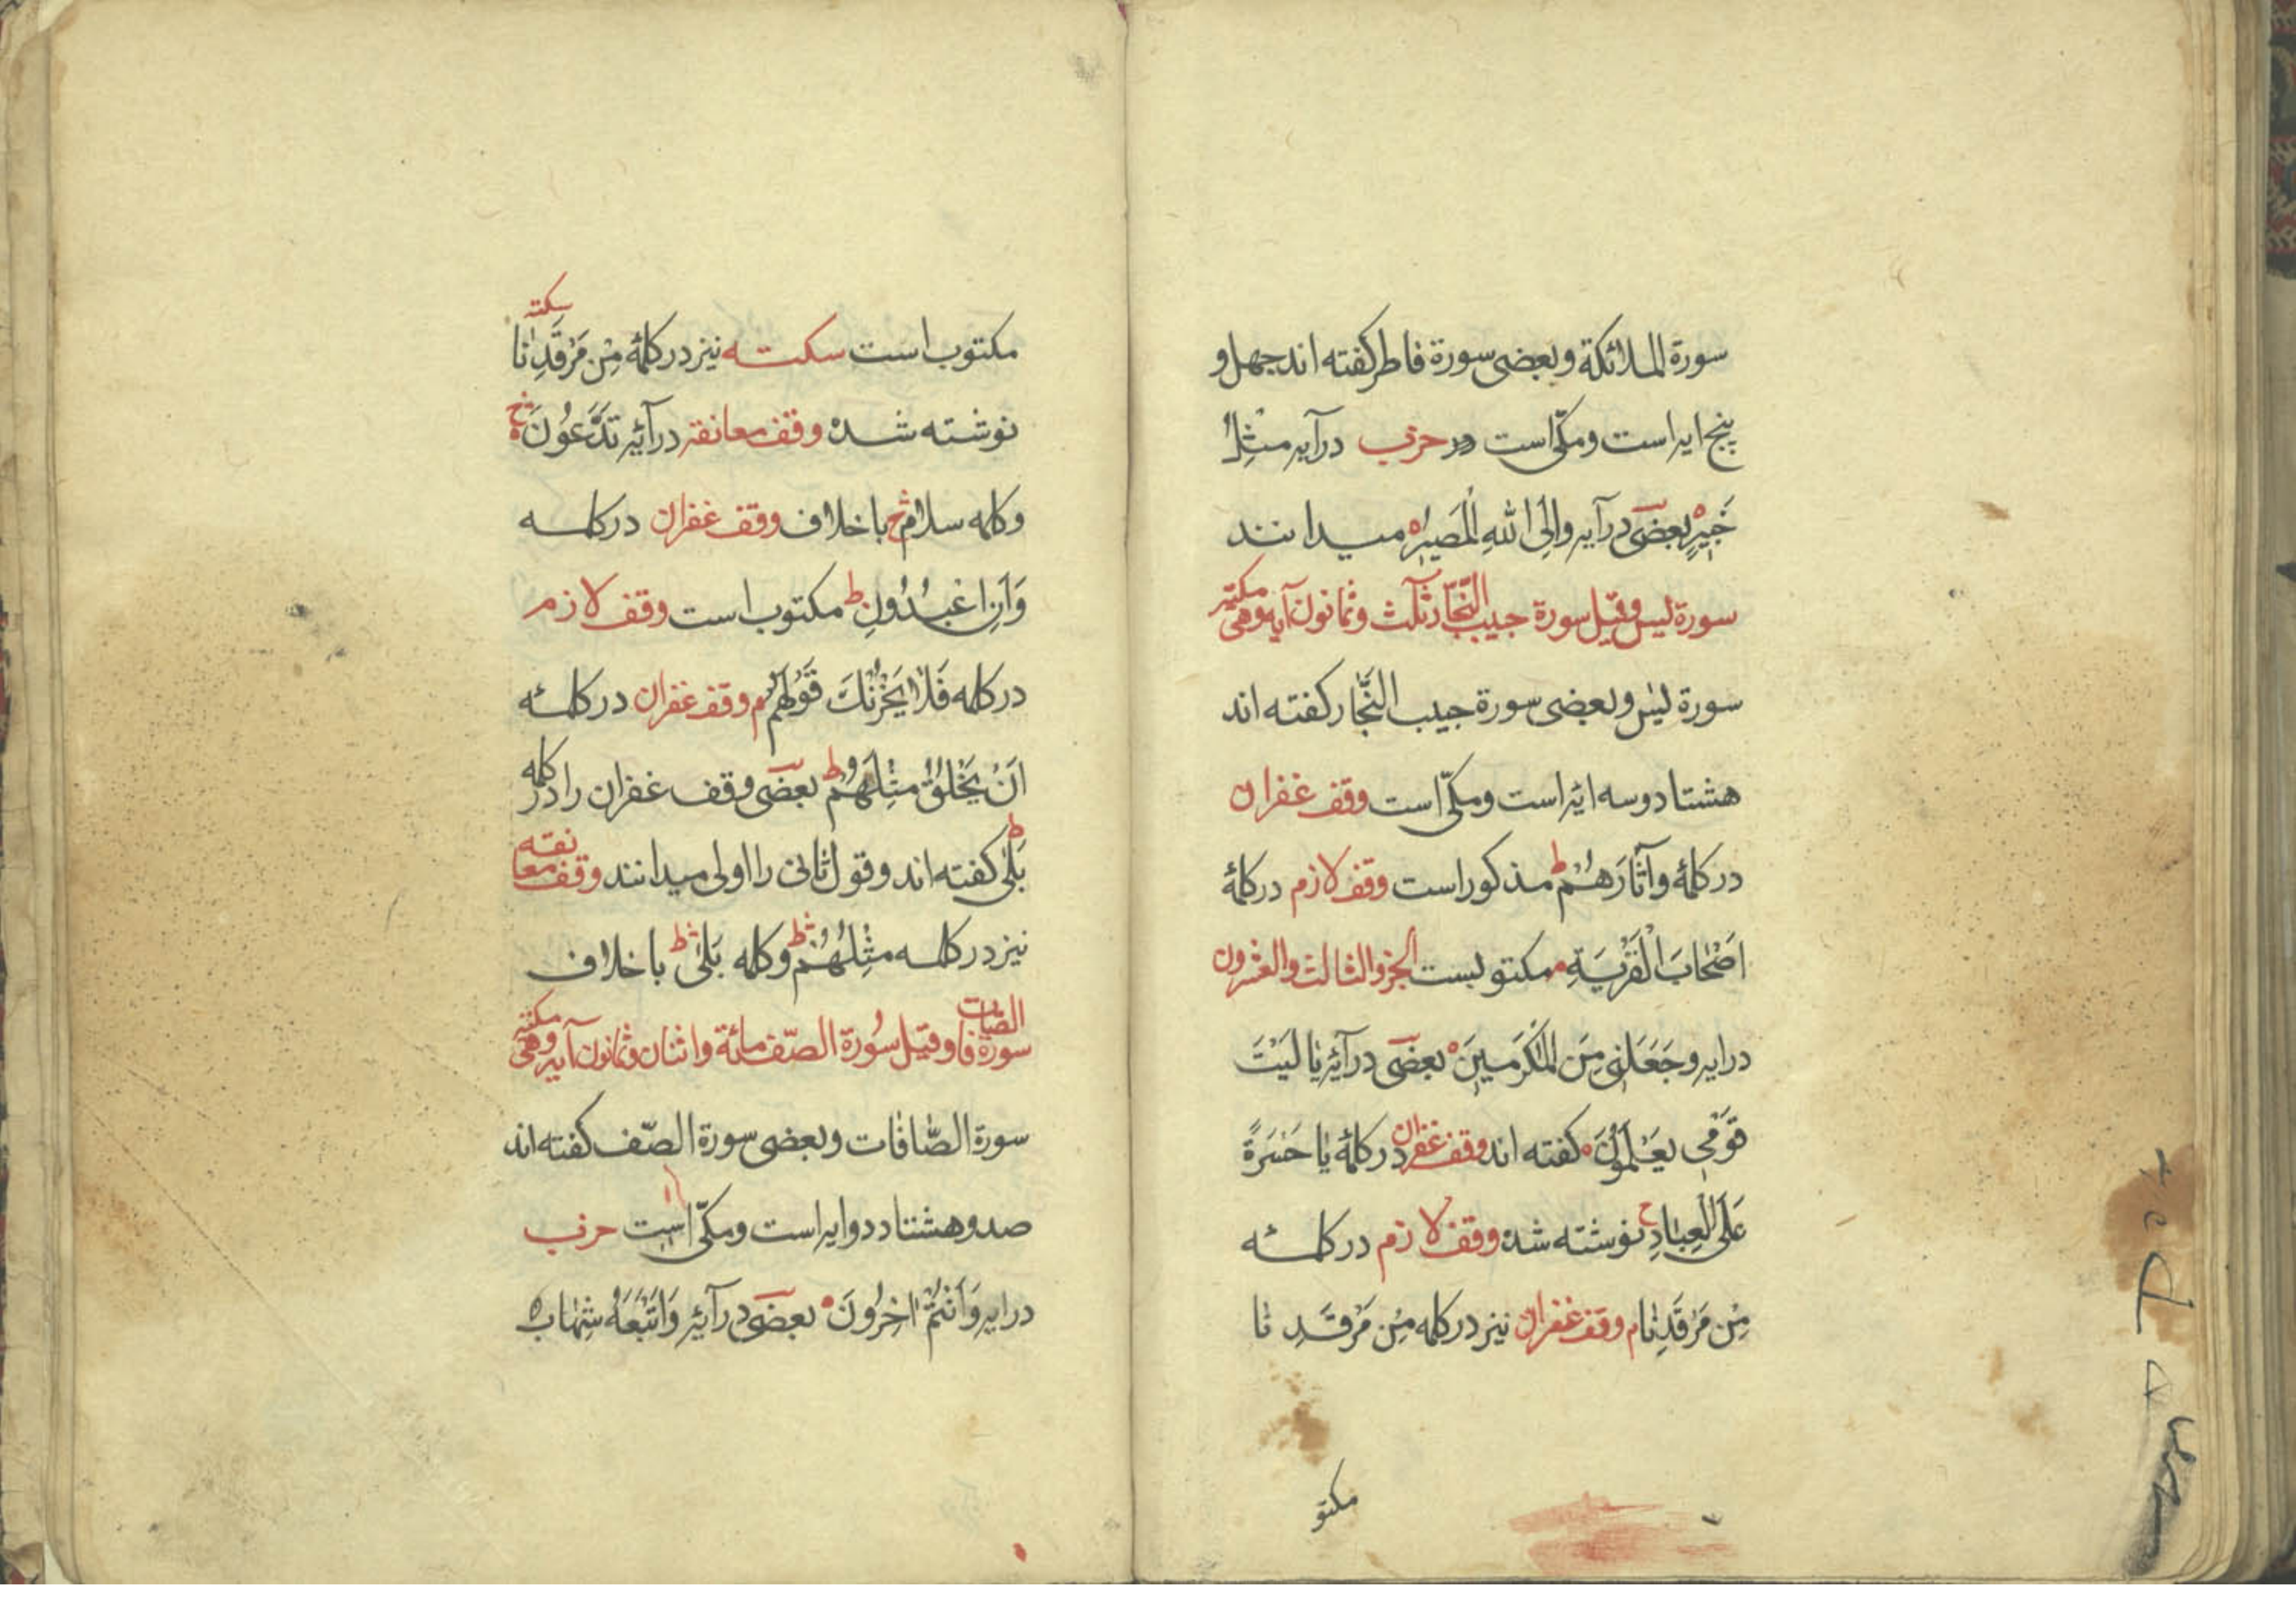 سورة الملائكة وبعضى سورة فاطر كفته اند جهل و
پنج ايه است ومكّى است در حزب درآيه مِثْلُ
خَبِيرٍ ه بعضى درآيه وَاِلَى اللهِ الْمَصِيرُ ه ميدانند
سورة ليس وقيل سورة حبيب النّجّار ثلث وثمانون آيه وهى مكيّه
سورة ليس وبعضى سورة حبيب النَّجّار كفته اند
هشتاد وسه ايه است ومكّى است وقف غفران
در كلمهٔ وآثَارَهُمْ ط مذكور است وقف لازم در كلمهٔ
اَصْحَابَ الْقَرْيَةِ م مكتوبست الجزو الثالث والعشرون
درايه وجَعَلَنِى مِنَ الْمُكْرَمِينَ ه بعضى درآيه يَا لَيْتَ
قَوْمِى يَعْلَمُونَ ه كفته اند وقف غفران در كلمهٔ يَا حَسْرَةً
عَلَى الْعِبَادِ ح نوشته شده وقف لازم در كلمه
مِنْ مَرْقَدِنَا م وقف غفران نيز در كلمه مِنْ مَرْقَدِ نَا
مكتو
مكتوب است سكته نيز در كلمهٔ مِنْ مَرْقَدِنَا سكته
نوشته شده وقف معانقه درآيه تَدَّعُونَ ج
وكلمه سلام ج با خلاف وقف غفران در كلمه
وَاَنِ اعْبُدُونِ ط مكتوب است وقف لازم
در كلمه فَلَا يَحْزُنْكَ قَوْلُهُمْ م وقف غفران در كلمه
اَنْ يَخْلُقَ مِثْلَهُمْ ط بعضى وقف غفران را در كلمه
بَلٰى ط كفته اند وقول ثانى را اولى ميدانند وقف معانقه
نيز در كلمه مِثْلَهُمْ ط وكلمه بَلٰى ط با خلاف
سورة الصّافات وقيل سُورة الصّف مائة واثنان وثمانون آيه وهى مكيّه
سورة الصَّافَات وبعضى سورة الصّف كفته اند
صد وهشتاد دو ايه است ومكّى است حزب
درايه وَاَنْتُمْ اخِرُونَ ه بعضى درآيه وَاَتْبَعَهُ شِهَابٌ